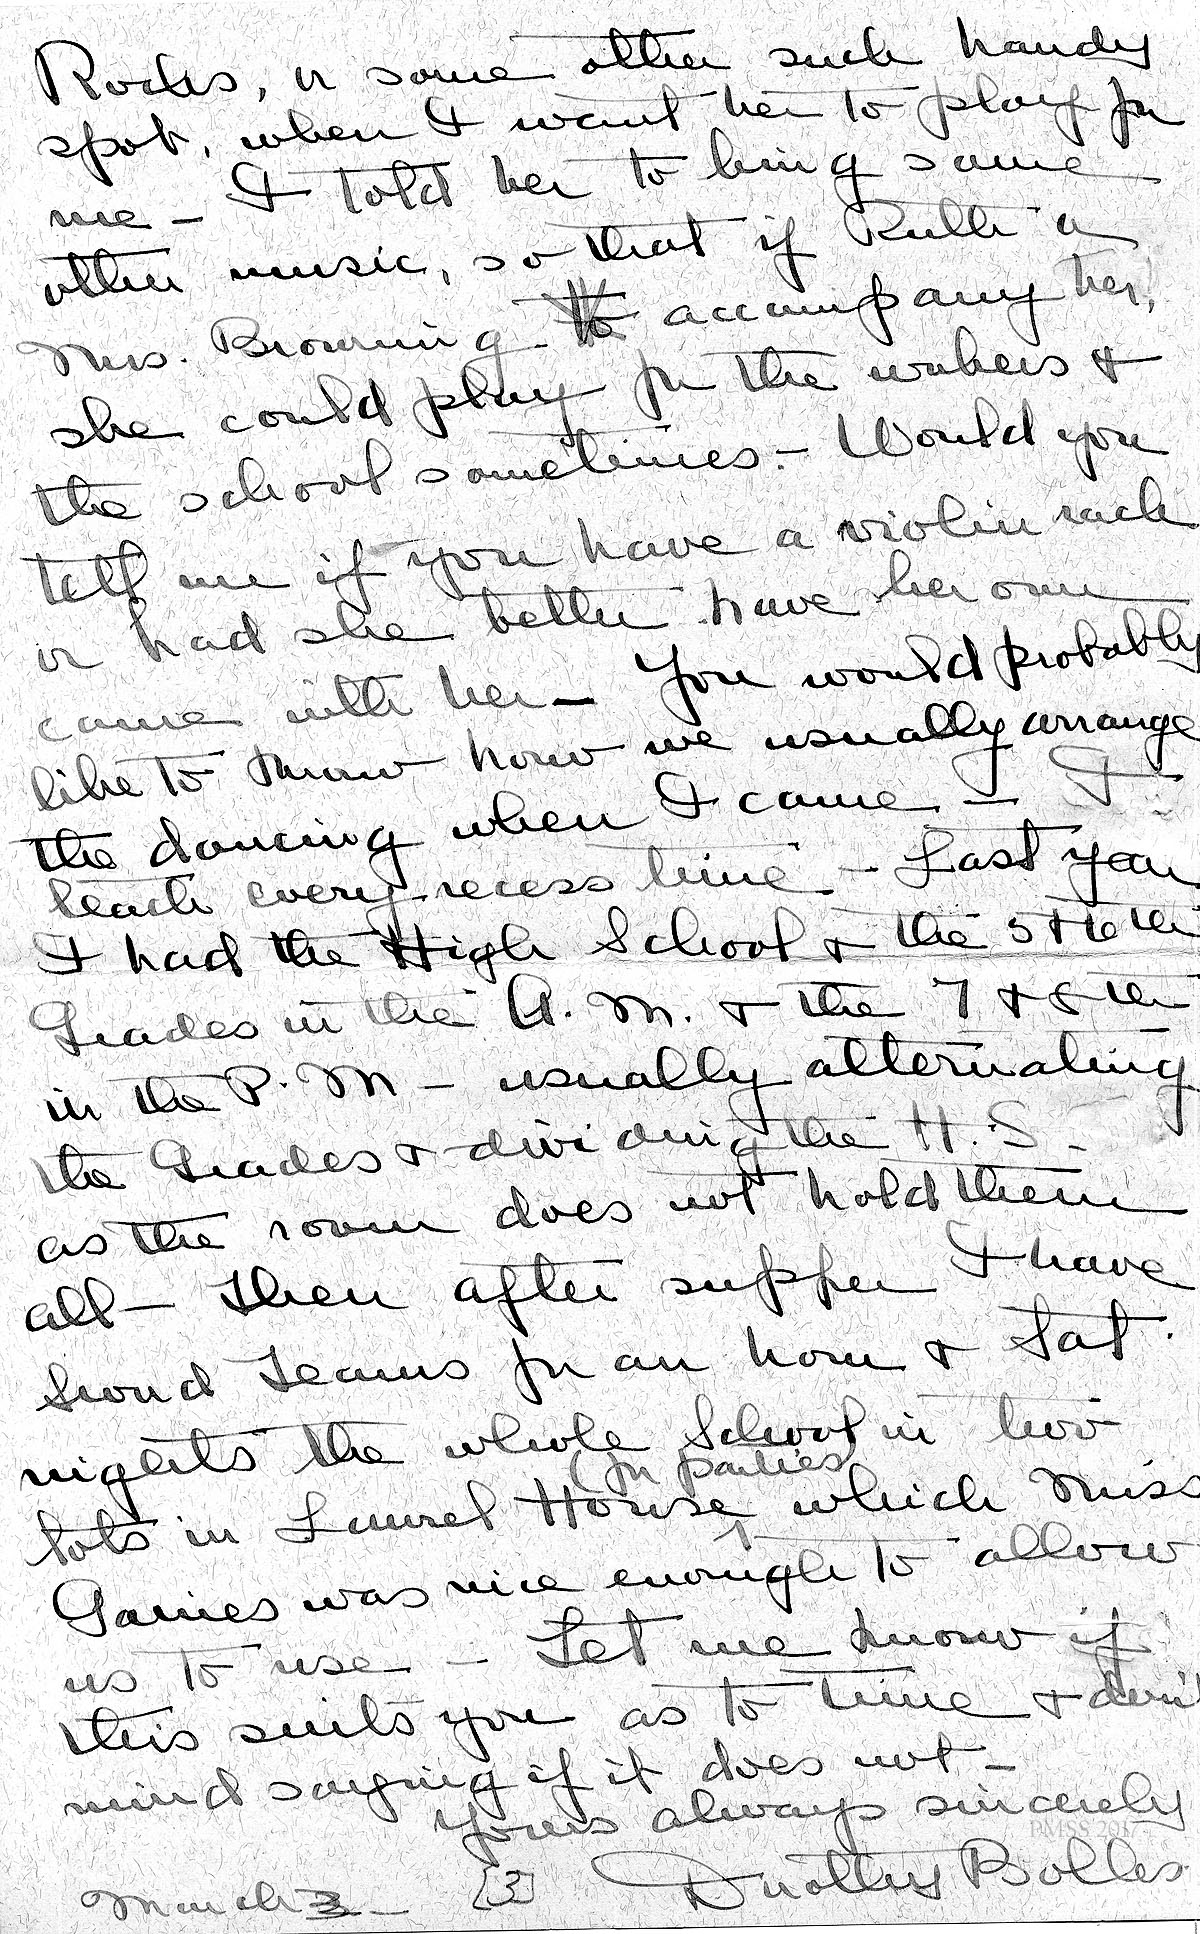 Rocks, or some other such handy
spot, when I want her to play for
me - I told her to bring some
other music, so that if Ruth or
Mrs. Browning to accompany her,
she could play for the workers &
the school sometimes. - Would you
tell me if you have a violin rack
or had she better have her own
came with her - You would probably
like to know how we usually arrange
the dancing when I came - I
teach every recess time - Last year
I had the High School & the 5 & 6th
Grades in the A. M. & the 7 & 8th
in the P. M - usually alternating
the Grades & dividing the H. S. -
as the room does not hold them
all - Then after supper I have
Sword Teams for an hour & Sat.
nights the whole School in two
(for parties)
lots in Laurel House which Miss
Gaines was nice enough to allow
us to use - Let me know if
this suits you as to time & don't
mind saying if it does not -
Yours always sincerely
PMSS 2017
Dorothy Bolles.
March 3 - [3]